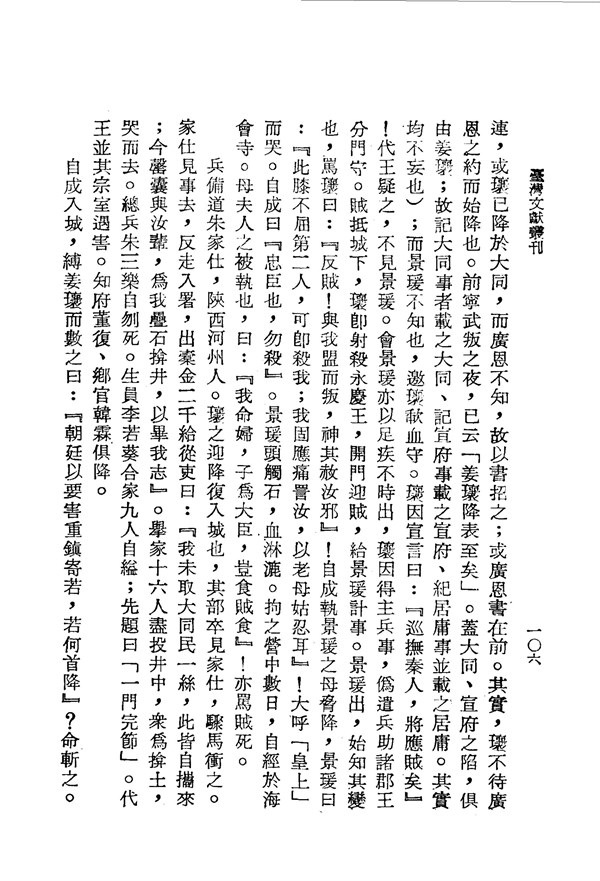 臺灣文獻叢刊
一〇六
連，或瓖已降於大同，而廣恩不知，故以書招之；或廣恩書在前。其實，瓖不待廣
恩之約而始降也。前寧武叛之夜，已云「姜瓖降表至矣」。蓋大同、宣府之陷，俱
由姜瓖；故記大同事者載之大同、記宣府事載之宣府、紀居庸事並載之居庸。其實
均不妄也）；而景瑗不知也，邀瓖歃血守。瓖因宣言曰：『巡撫秦人，將應賊矣』
！代王疑之，不見景瑗。會景瑗亦以足疾不時出，瓖因得主兵事，僞遣兵助諸郡王
分門守。賊抵城下，瓖卽射殺永慶王，開門迎賊，給景瑗計事。景瑗出，始知其變
也，罵瓖曰：『反賊！與我盟而叛，神其赦汝邪』！自成執景瑗之母脅降，景瑗曰
：『此膝不屈第二人，可卽殺我；我固應痛詈汝，以老母姑忍耳』！大呼「皇上」
而哭。自成曰『忠臣也，勿殺』。景瑗頭觸石，血淋漉。拘之營中數日，自經於海
會寺。母夫人之被執也，曰：『我命婦，子爲大臣，豈食賊食』！亦罵賊死。
兵備道朱家仕，陝西河州人。瓖之迎降復入城也，其部卒見家仕，驟馬衝之。
家仕見事去，反走入署，出橐金二千給從吏曰：『我未取大同民一絲，此皆自攜來
；今罄囊與汝輩，爲我疊石揜井，以畢我志』。舉家十六人盡投井中，衆爲揜土，
哭而去。總兵朱三樂自刎死。生員李若葵合家九人自縊；先題曰「一門完節」。代
王並其宗室遇害。知府董復、鄉官韓霖俱降。
自成入城，縛姜瓖而數之曰：『朝廷以要害重鎭寄若，若何首降』？命斬之。